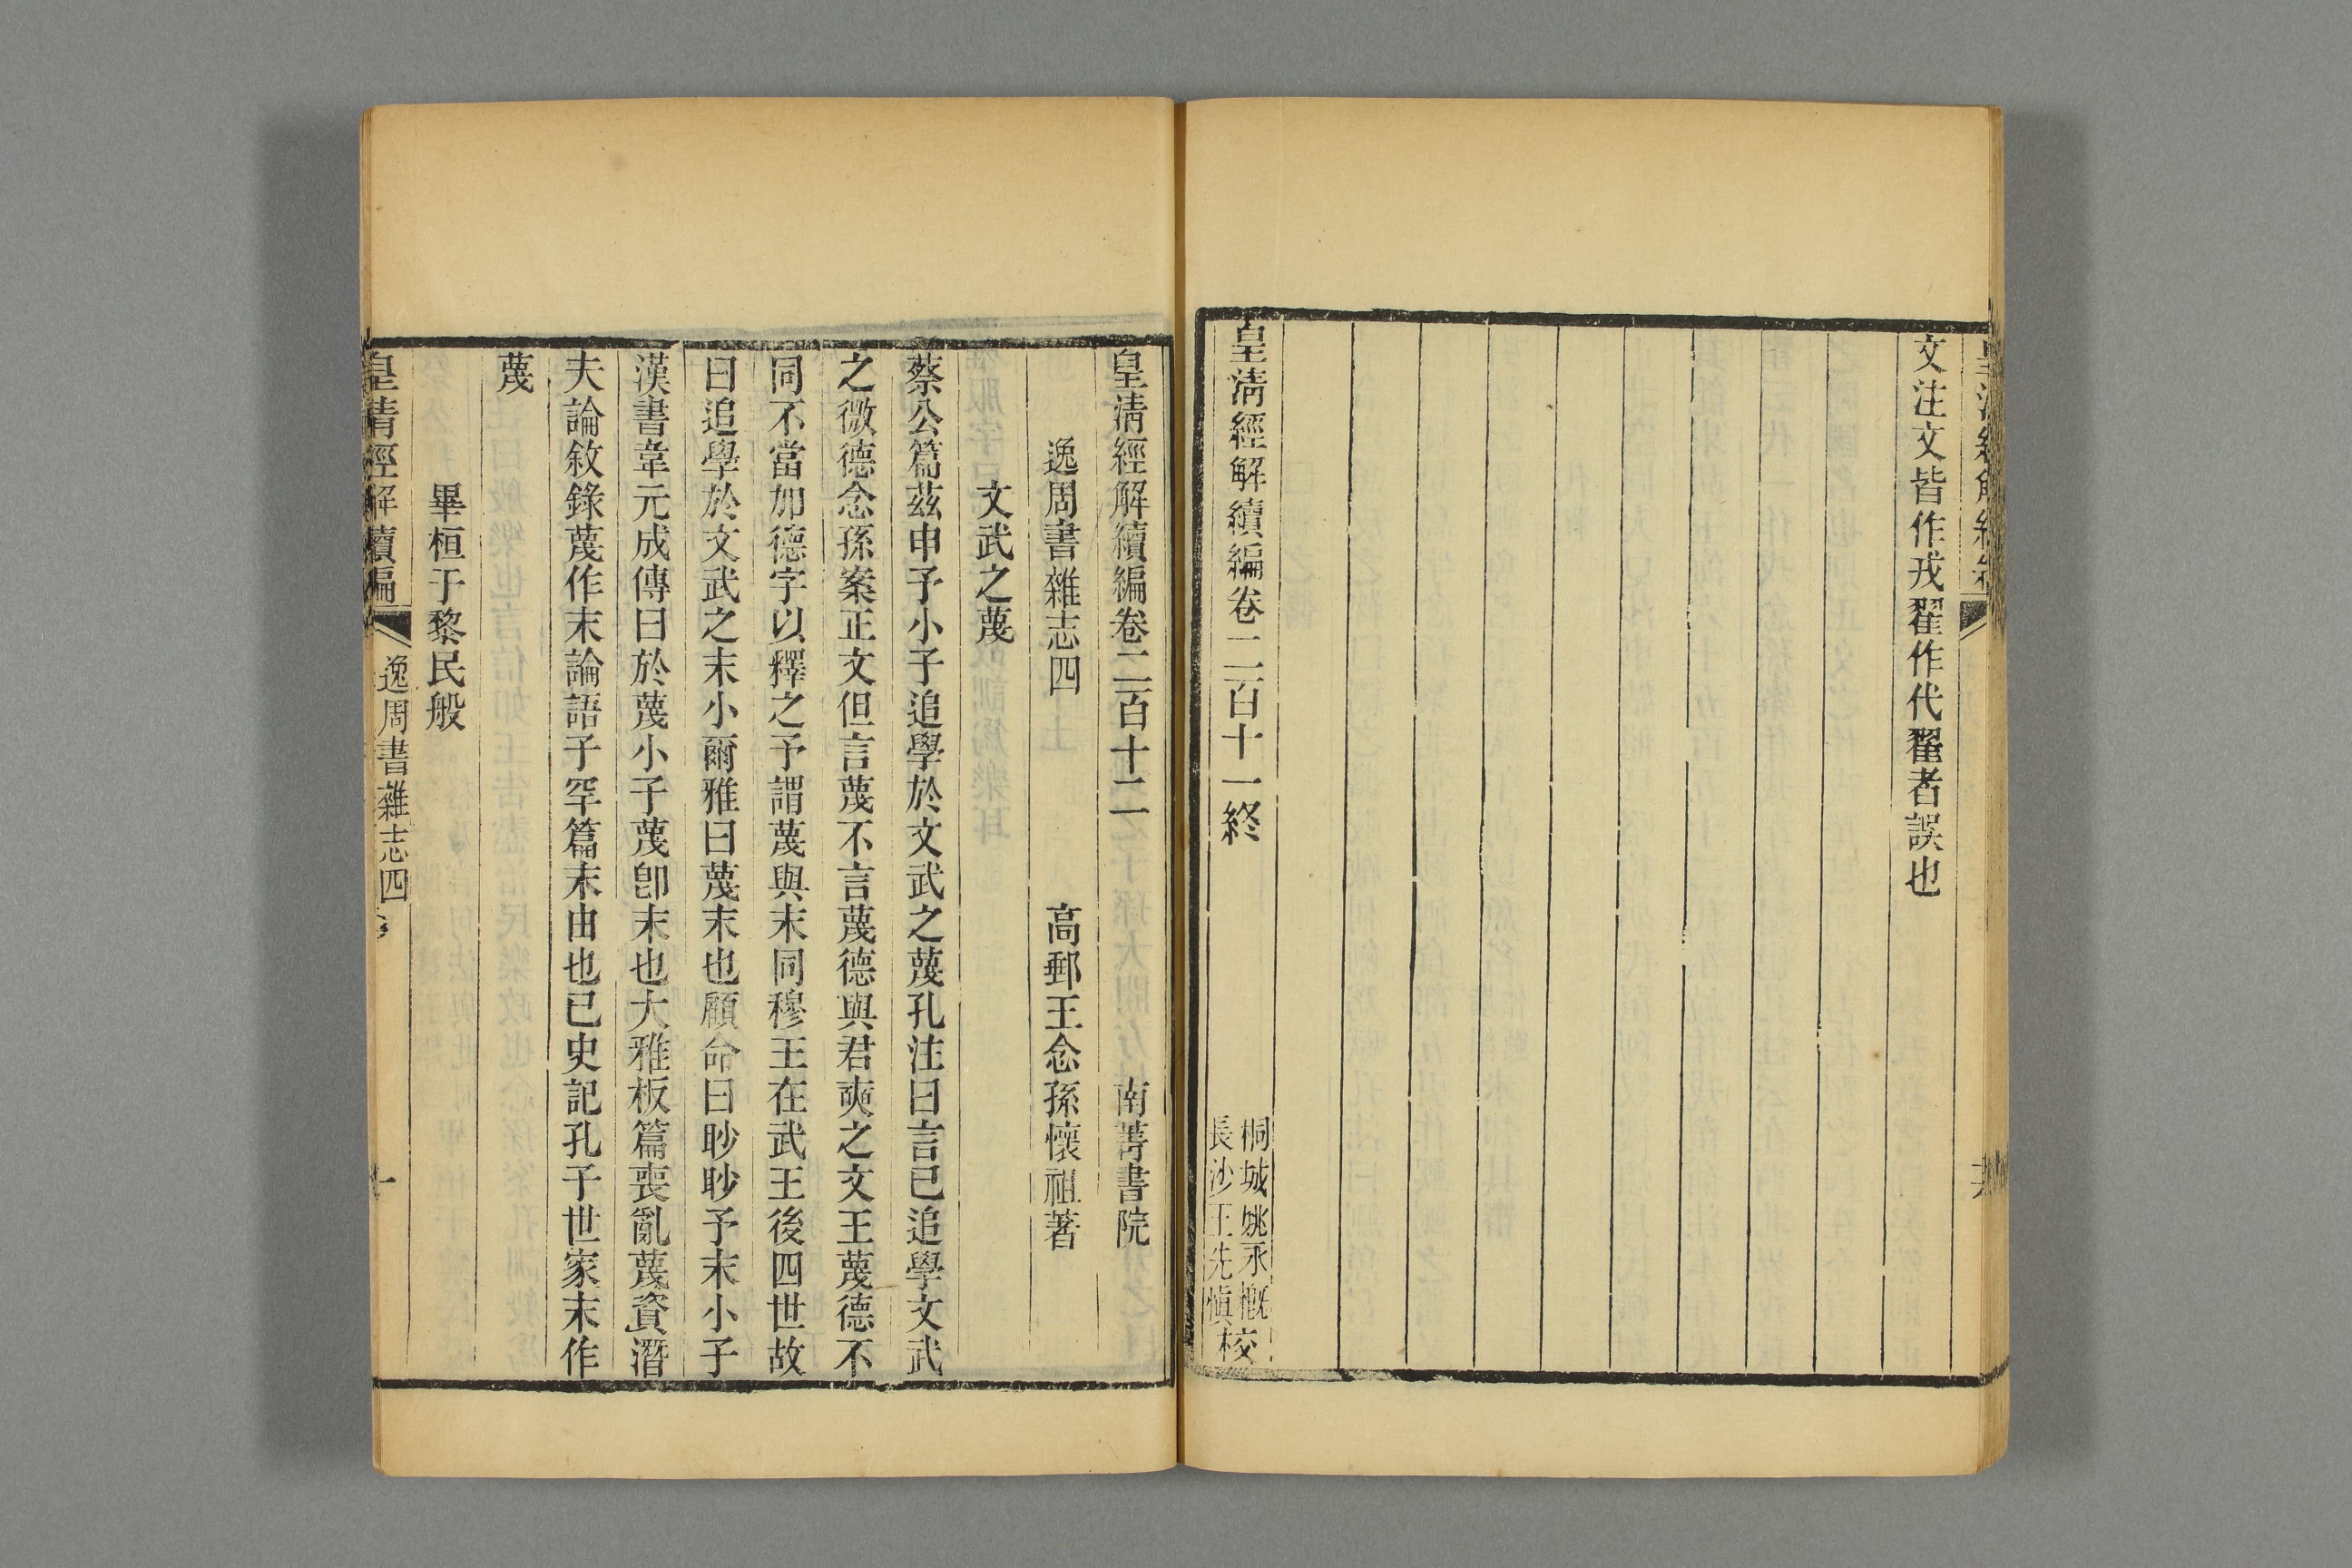 文注文皆作戎翟作代翟者誤也
皇清經解續編卷二百十一終
桐城姚永概
長沙王先慎校
皇清經解續編卷二百十二
南菁書院
逸周書雜志四
高郵王念孫懷祖著
文武之蔑
蔡公篇茲申予小子追學於文武之蔑孔注曰言已追學文武
之微德念孫案正文但言蔑不言蔑德與君奭之文王蔑德不
同不當加德字以釋之予謂蔑與末同穆王在武王後四世故
曰追學於文武之末小爾雅曰蔑末也顧命曰眇眇予末小子
漢書韋元成傳曰於蔑小子蔑卽末也大雅板篇喪亂蔑資潛
夫論敘錄蔑作末論語子罕篇末由也已史記孔子世家末作
蔑
畢桓于黎民般
皇清經解續編
逸周書雜志四
一